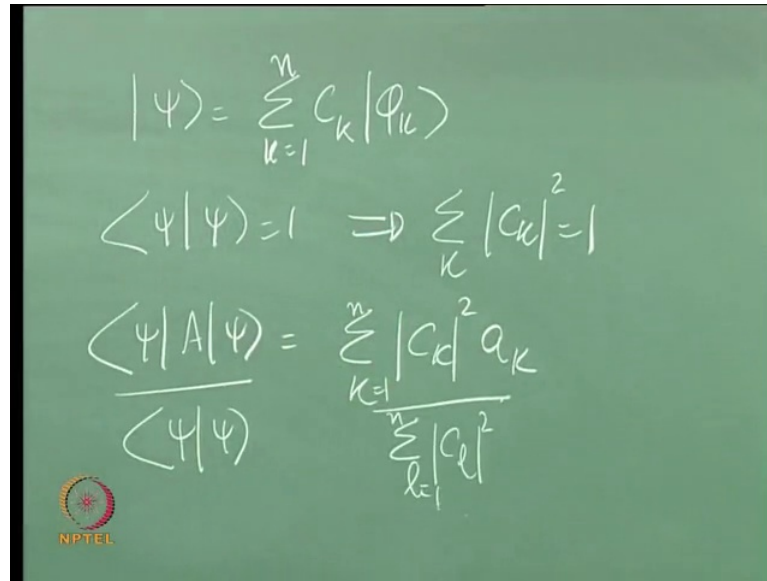 |ψ⟩ = ∑_{k=1}^{n} C_k |φ_k⟩
⟨ψ|ψ⟩ = 1 ⇒ ∑_k |C_k|² = 1
⟨ψ|A|ψ⟩ / ⟨ψ|ψ⟩ = ∑_{k=1}^{n} |C_k|² a_k / ∑_{l=1}^{n} |C_l|²
NPTEL